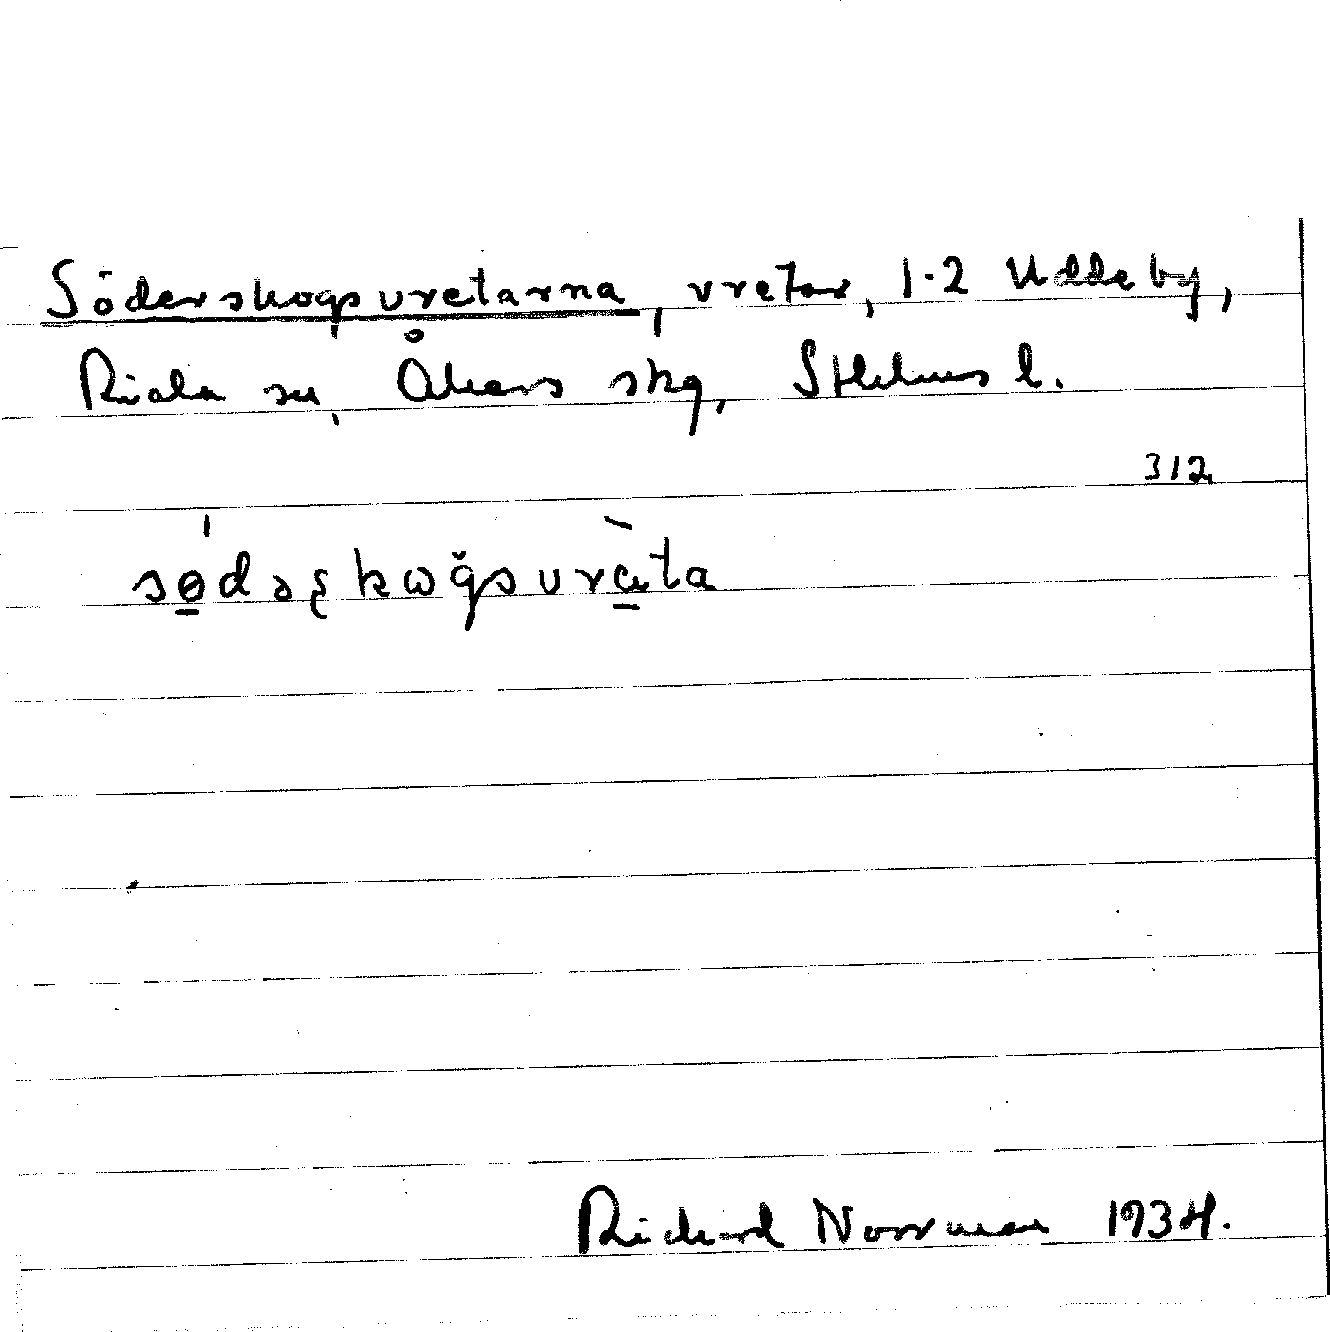 Söderskogsvretarna, vretar, 1-2 Uddeby,
Riala sn, Åkers skg, Sthlms l.
312
sødəʂkωğsvrata
Richard Norrman 1934.